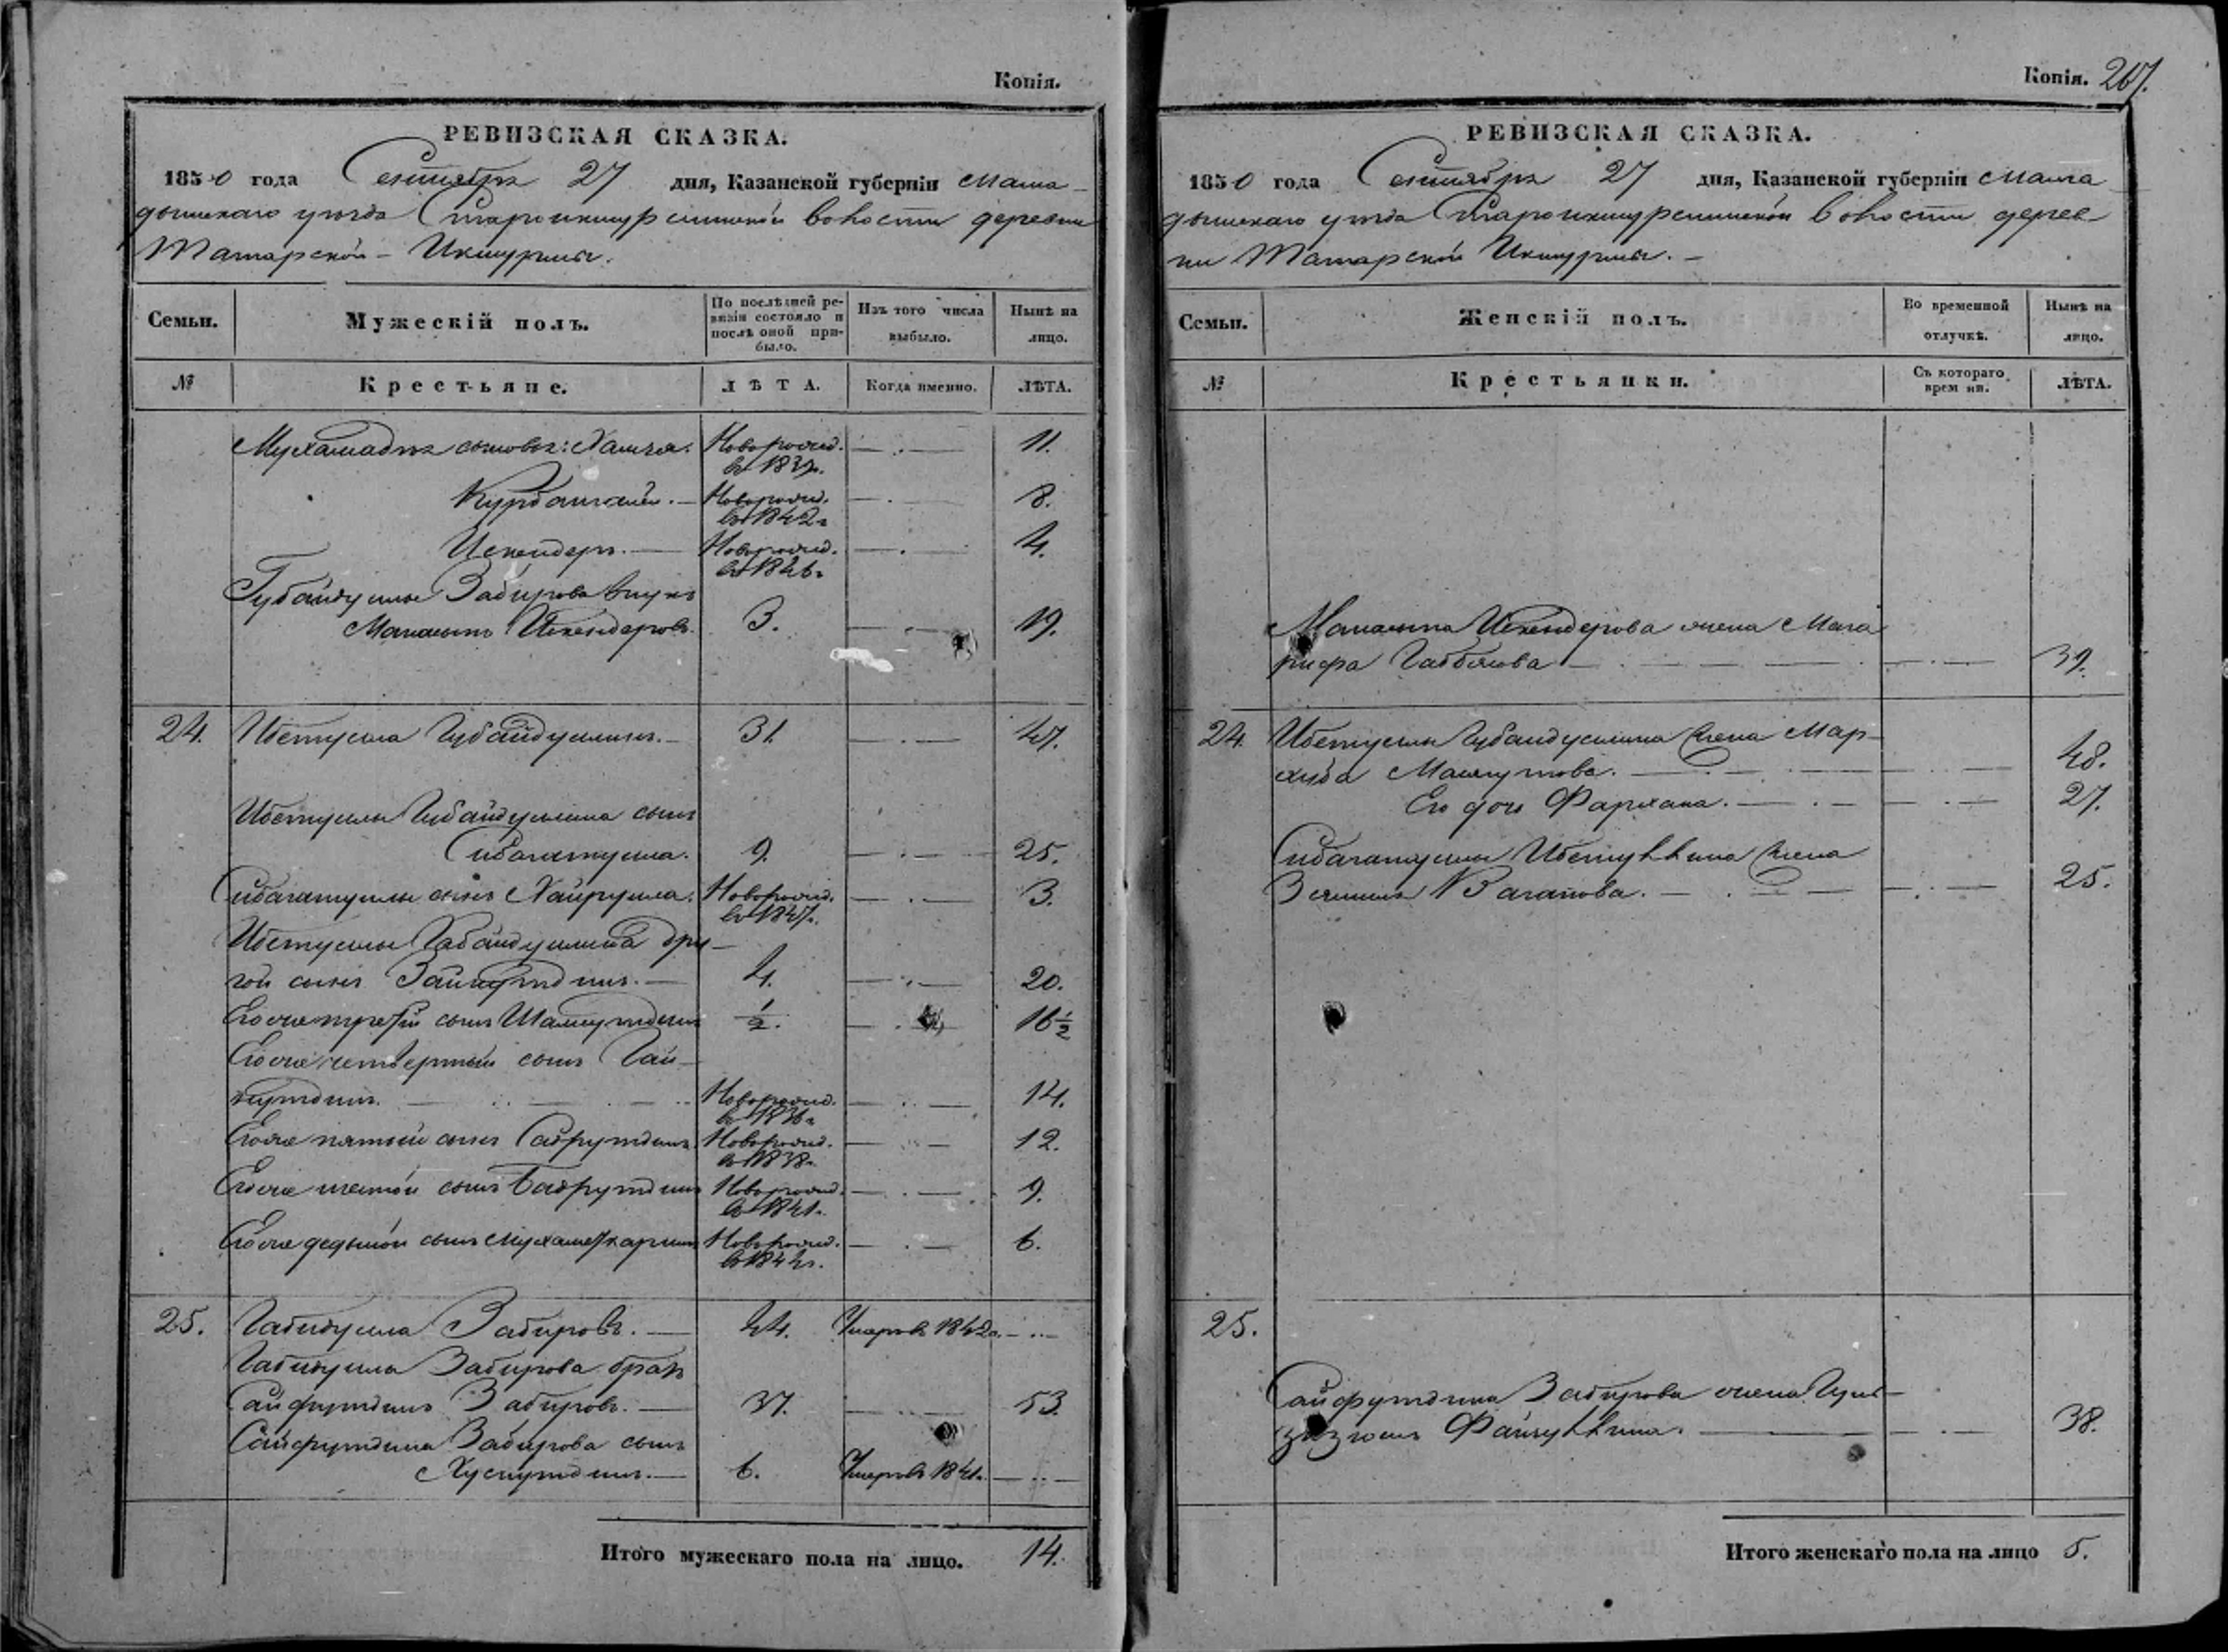 Копія.
РЕВИЗСКАЯ СКАЗКА.
1850 года Сентября 27 дня, Казанской губерніи Мама-
дышскаго уѣзда Староикшурминской волости деревни
Татарской-Икшурмы.
Семьи. Мужескій полъ. По послѣдней ревизіи состояло и послѣ оной прибыло. Изъ того числа выбыло. Нынѣ на лицо.
№ Крестьяне. ЛѢТА. Когда именно. ЛѢТА.
Мухамадѣя сыновья: Хамзя. Новорожд. 11.
Курбангалѣй. Новорожд. 8.
въ 1842г.
Искендеръ. Новорожд. 4.
въ 1846г.
Губайдуллы Забирова внукъ
Искендеровъ. 3. 19.
24. Ибетулла Губайдуллинъ. 31. 47.
Ибетуллы Губайдуллина сынъ
Сибагатулла. 9. 25.
Сибагатуллы сынъ Хайрулла. Новорожд. 3.
въ 1847г.
Ибетуллы Губайдуллина дру-
гой сынъ Зайнутдинъ. 4. 20.
Его же третій сынъ Шамсутдинъ ½. 16½
Его же четвертый сынъ Гай-
нутдинъ. Новорожд. 14.
въ 1836г.
Его же пятый сынъ Садрутдинъ. Новорожд. 12.
въ 1838г.
Его же шестой сынъ Бадрутдинъ Новорожд. 9.
въ 1841г.
Его же седьмой сынъ Мухаметкаримъ Новорожд. 6.
въ 1844г.
25. Габидулла Забировъ. 44. Умеръ въ 1842г.
Габидуллы Забирова братъ
Сайфутдинъ Забировъ. 37. 53.
Сайфутдина Забирова сынъ
Хуснутдинъ. 6. Умеръ въ 1841г.
Итого мужескаго пола на лицо. 14.
Копія. 267.
РЕВИЗСКАЯ СКАЗКА.
1850 года Сентября 27 дня, Казанской губерніи Мама
дышскаго уѣзда Староикшурминской волости дерев-
ни Татарской Икшурмы.
Семьи. Женскій полъ. Во временной отлучкѣ. Нынѣ на лицо.
№ Крестьянки. Съ котораго времени. ЛѢТА.
Искендерова жена Мага
рифа 39.
24. Ибетуллы Губайдуллина жена Мар-
хиба Машкутова. 48.
Его дочь Фархана. 27.
Сибагатуллы Ибетуллина жена
Вагапова. 25.
25.
Сайфутдина Забирова жена Гуль-
Файзуллина. 38.
Итого женскаго пола на лицо 5.